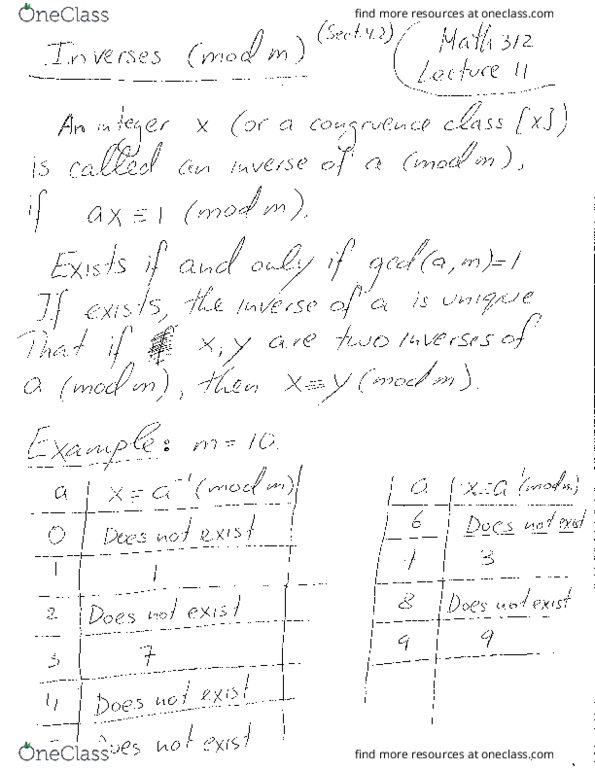 OneClass
find more resources at oneclass.com
Inverses (mod m) (Sect. 4.2)
Math 312
Lecture 11
An integer x (or a congruence class [x])
is called an inverse of a (mod m),
if ax ≡ 1 (mod m).
Exists if and only if gcd(a,m)=1
If exists, the inverse of a is unique
That if x, y are two inverses of
a (mod m), then x ≡ y (mod m).
Example: m = 10.
a x = a⁻¹ (mod m)
0 Does not exist
1 1
2 Does not exist
3 7
4 Does not exist
Does not exist
a x = a⁻¹ (mod m)
6 Does not exist
7 3
8 Does not exist
9 9
OneClass
find more resources at oneclass.com